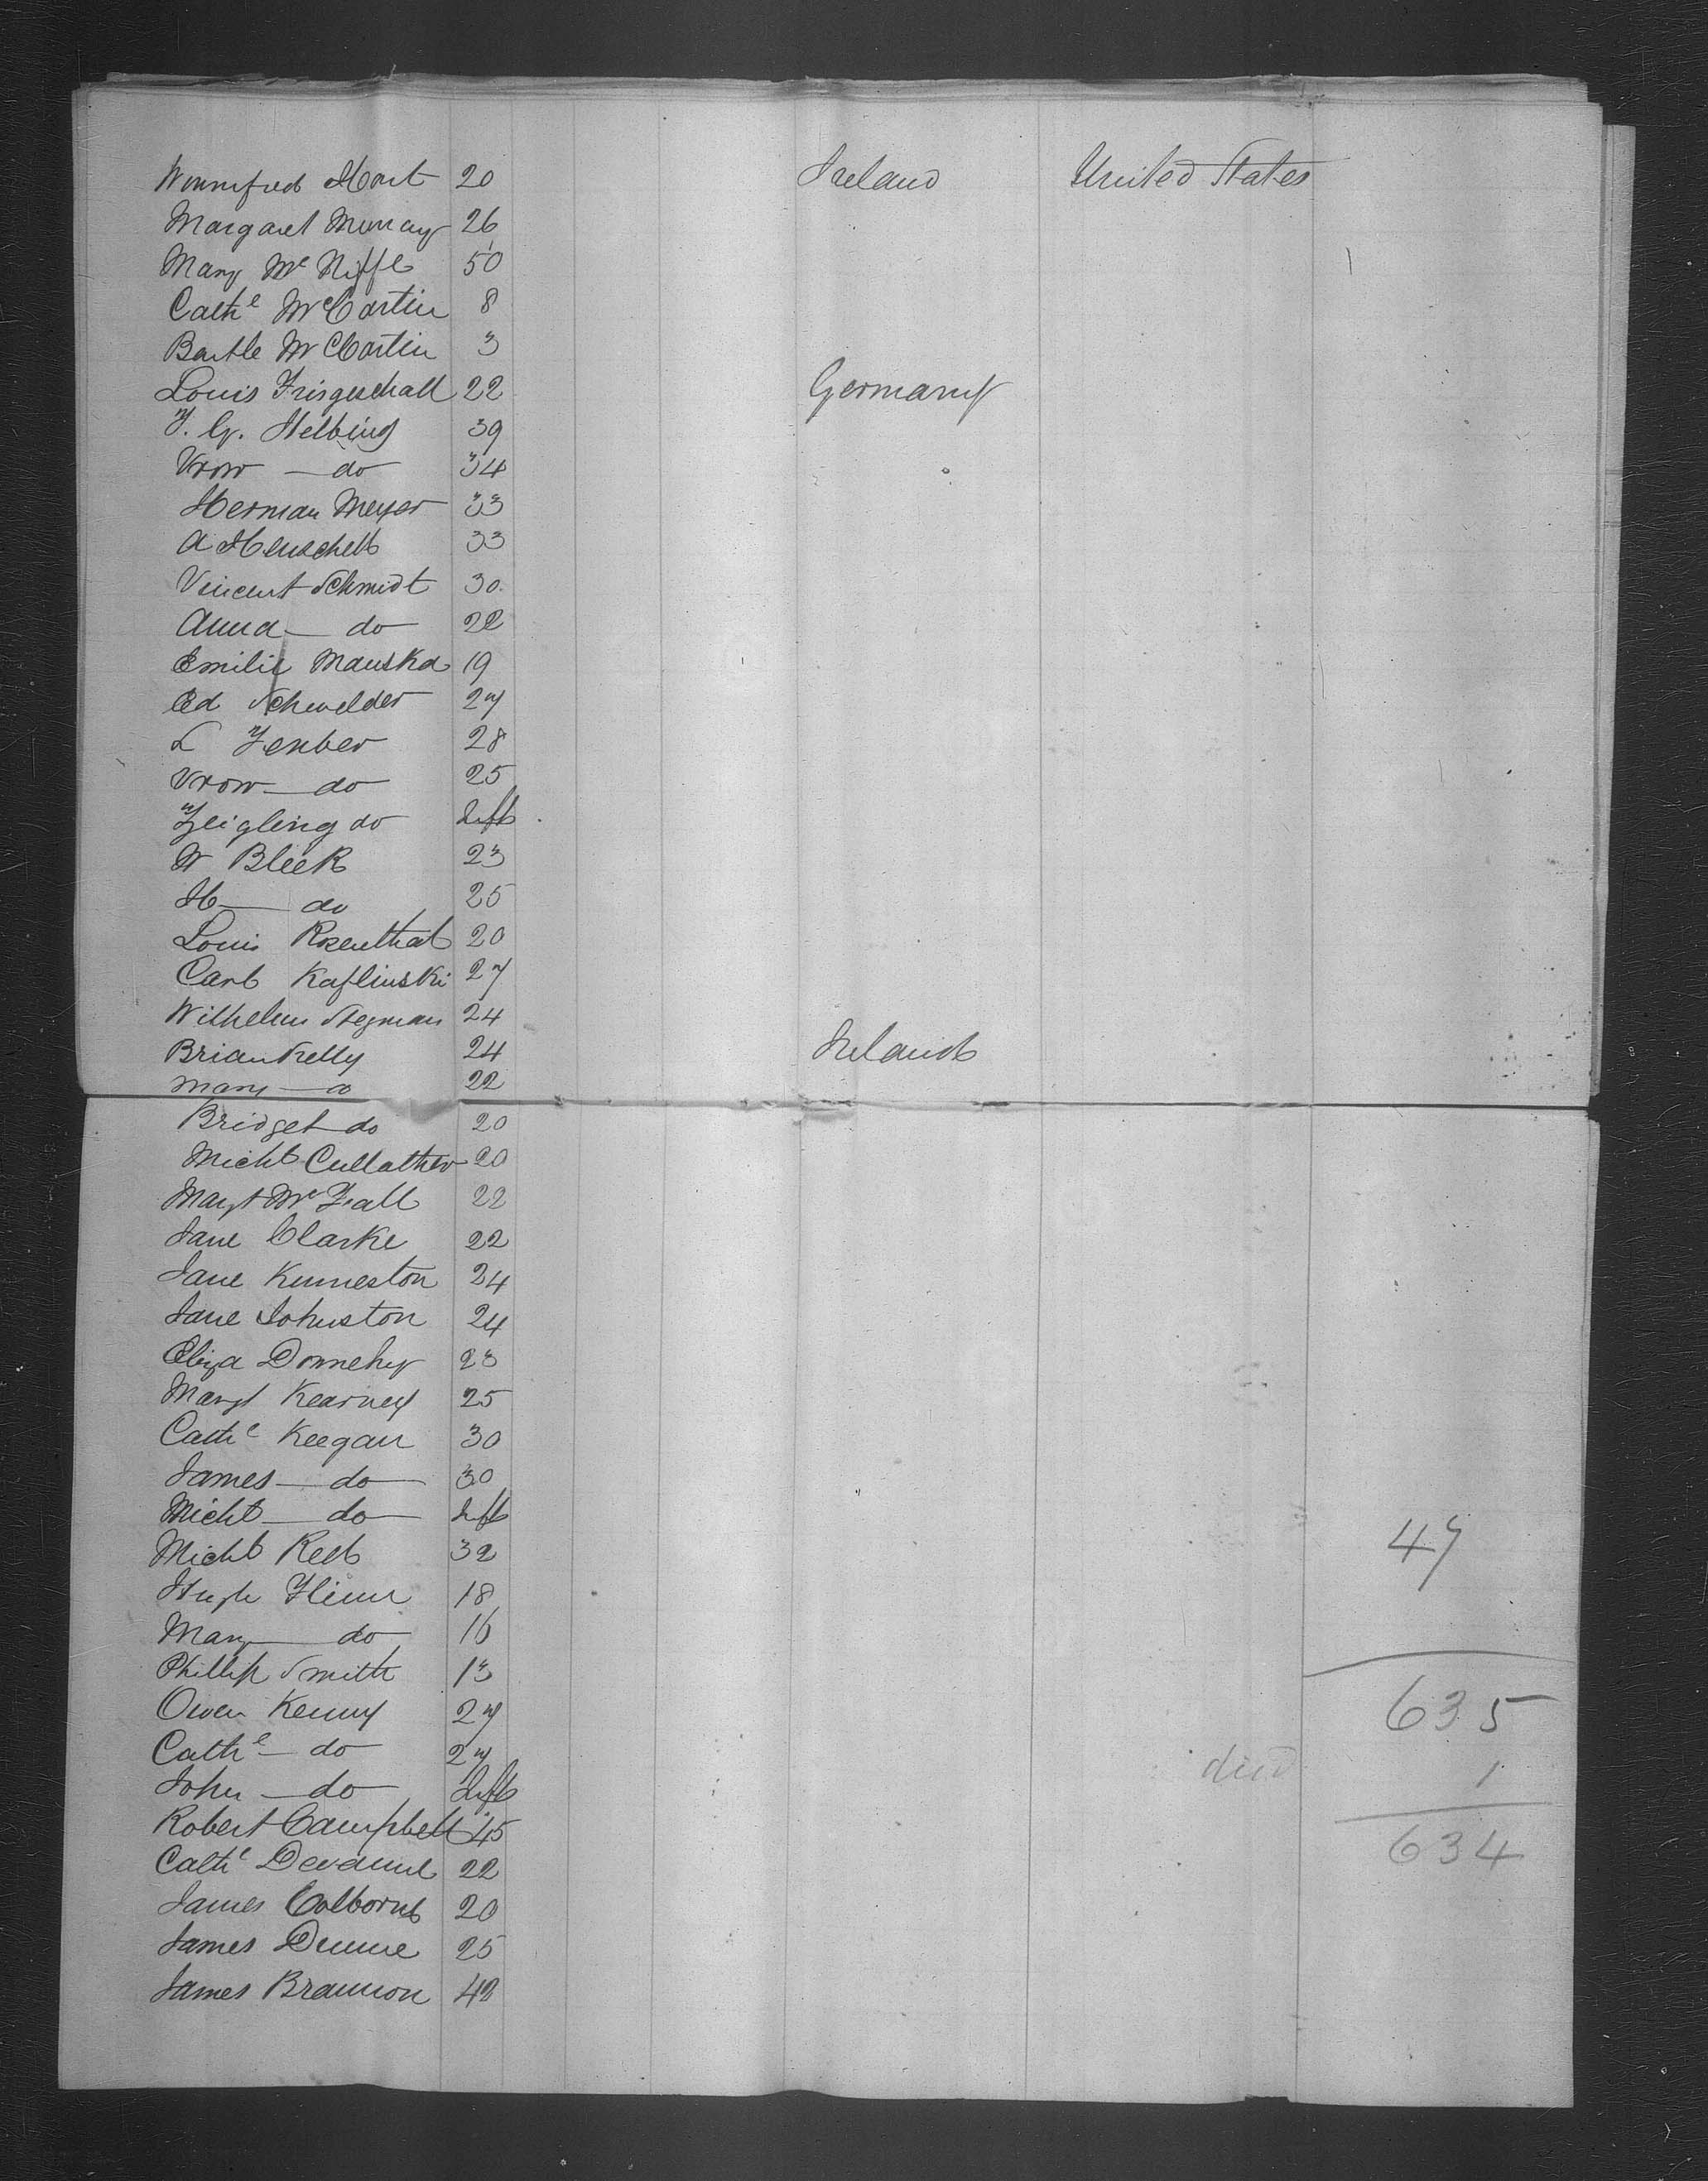 Winnifred Hart 20 Ireland United States
Margaret Murray 26
Mary Mc Niffe 50
Cathe McCartin 8
Bartle McCartin 3
Louis 22 Germany
F. G. Helbing 39
Vrow — do 34
Herman Meyer 33
A Henschell 33
Vincent Schmidt 30
Anna — do 22
Emilie Mauska 19
Ed Schwelder 27
L Ferber 28
Vrow — do 25
do Inft
W Bleek 23
H — do 25
Louis Rosenthal 20
Carl Kaflinski 27
Wilhelm Stegman 24
Brian Kelly 24 Ireland
Mary — do 22
Bridget do 20
Michl 20
Margt Mc Fall 22
Jane Clarke 22
Jane Kunneston 24
Jane Johnston 24
Eliza Donnehy 23
Margt Kearney 25
Cathe Keegan 30
James — do 30
Michl — do Inft
Michl Reel 32 47
Hugh Flinn 18
Mary — do 16
Phillip Smith 13
Owen Kenny 27 635
Cathe — do 27 died 1
John — do Inft
Robert Campbell 45 634
Cathe 22
James Colborne 20
James Dunne 25
James Brannon 42